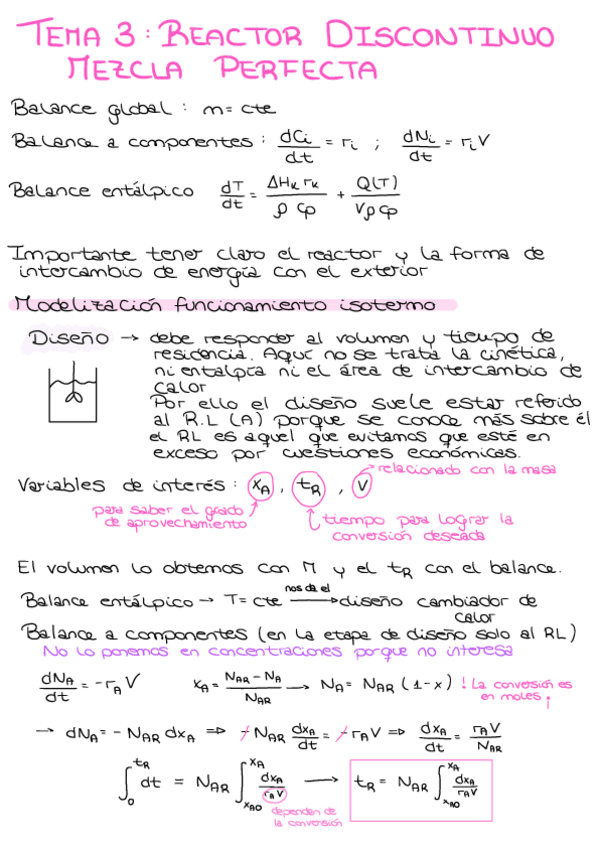 TEMA 3: REACTOR DISCONTINUO
MEZCLA PERFECTA
Balance global : m = cte
Balance a componentes : dCi/dt = ri ; dNi/dt = riV
Balance entálpico dT/dt = ΔHK rK/ρ cp + Q(T)/Vρcp
Importante tener claro el reactor y la forma de
intercambio de energía con el exterior
Modelización funcionamiento isotermo
Diseño → debe responder al volumen y tiempo de
residencia. Aquí no se trata la cinética,
ni entalpía ni el área de intercambio de
calor
Por ello el diseño suele estar referido
al R.L (A) porque se conoce más sobre él
el RL es aquel que evitamos que esté en
exceso por cuestiones económicas.
relacionado con la masa
Variables de interés : xA , tR , V
para saber el grado
de aprovechamiento
tiempo para lograr la
conversión deseada
El volumen lo obtemos con M y el tR con el balance.
Balance entálpico → T = cte nos da el → diseño cambiador de
calor
Balance a componentes (en la etapa de diseño solo al RL)
No lo ponemos en concentraciones porque no interesa
dNA/dt = -rA V xA = NAR - NA/NAR → NA = NAR (1-x) ! La conversión es
en moles ¡
→ dNA = - NAR dxA ⇒ -NAR dxA/dt = -rAV ⇒ dxA/dt = rAV/NAR
∫0^tR dt = NAR ∫xA0^xA dxA/rAV → tR = NAR ∫xA0^xA dxA/rAV
dependen de
la conversión